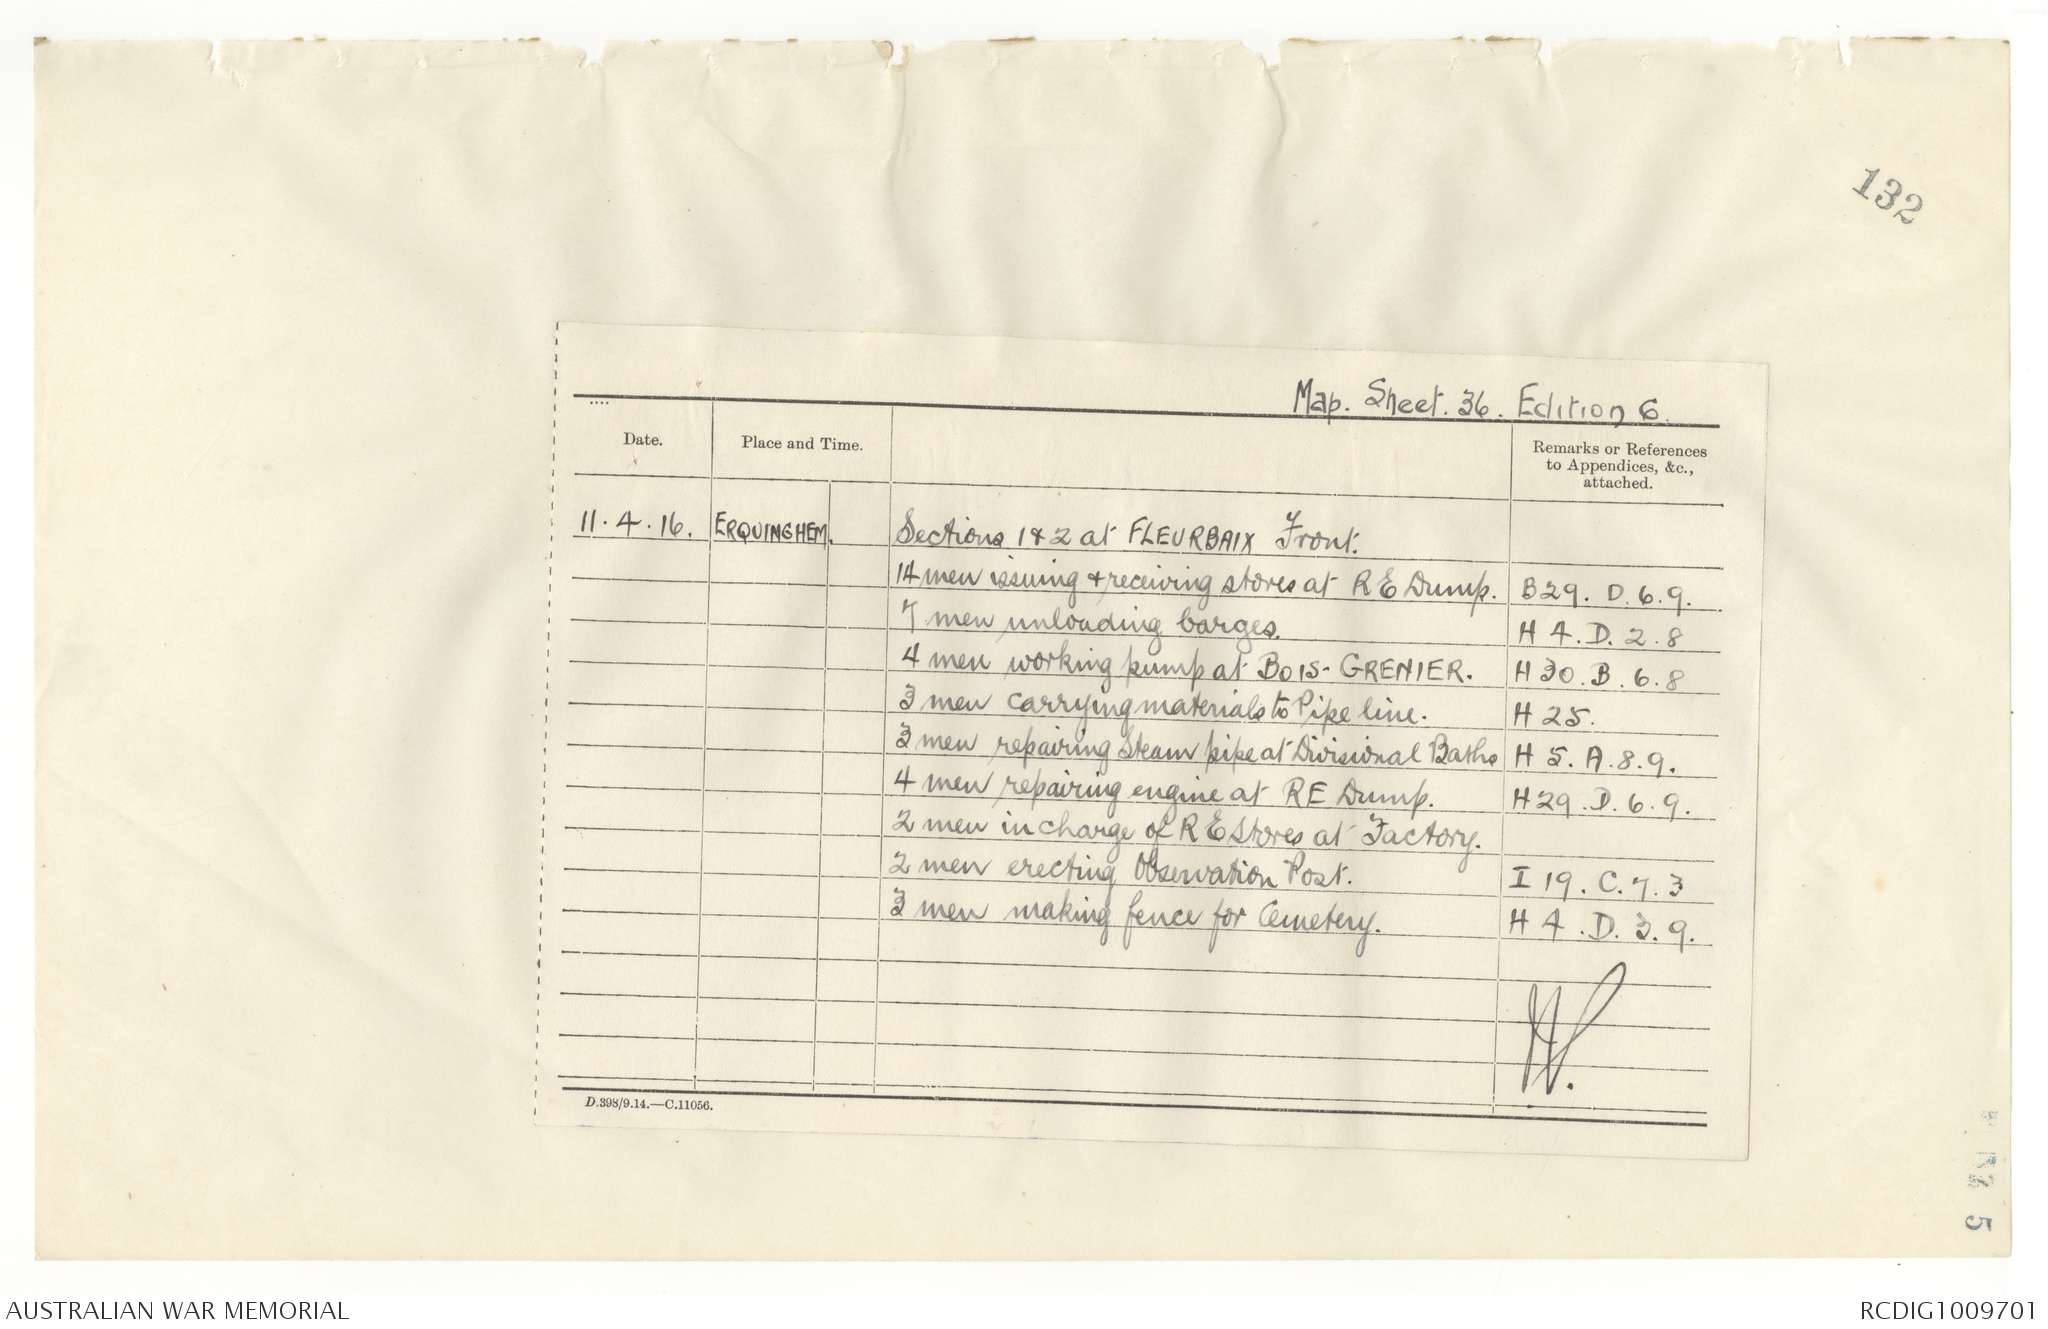 132
Map. Sheet. 36. Edition 6.
....
Date.
Place and Time.
Remarks or References
to Appendices, &c.,
attached.
11.4.16. ERQUINGHEM. Sections 1 & 2 at FLEURBAIX Front.
14 men issuing & receiving stores at R E Dump. B29. D. 6. 9.
7 men unloading barges. H 4. D. 2. 8
4 men working pump at BOIS-GRENIER. H 30. B. 6. 8
3 men carrying materials to Pipe line. H 25.
3 men repairing Steam pipe at Divisional Baths H 5. A. 8. 9.
4 men repairing engine at RE Dump. H29. D. 6. 9.
2 men in charge of R E Stores at Factory.
2 men erecting Observation Post. I 19. C. 7. 3
3 men making fence for Cemetery. H 4. D. 3. 9.
D.398/9.14.—C.11056.
5
AUSTRALIAN WAR MEMORIAL
RCDIG1009701